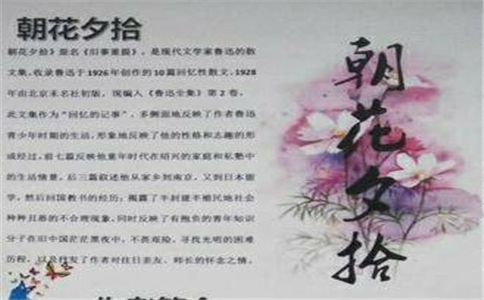 朝花夕拾
朝花夕拾》原名《旧事重提》，是现代文学家鲁迅的散
文集，收录鲁迅于1926年创作的10篇回忆性散文，1928
年由北京未名社初版，现编入《鲁迅全集》第2卷。
此文集作为“回忆的记事”，多侧面地反映了作者鲁迅
青少年时期的生活，形象地反映了他的性格和志趣的形
成经过。前七篇反映他童年时代在绍兴的家庭和私塾中
的生活情景，后三篇叙述他从家乡到南京，又到日本留
学，然后回国教书的经历；揭露了半封建半殖民地社会
种种丑恶的不合理现象，同时反映了有抱负的青年知识
分子在旧中国茫茫黑夜中，不畏艰险，寻找光明的困难
历程，以及抒发了作者对往日亲友、师长的怀念之情。
朝花夕拾